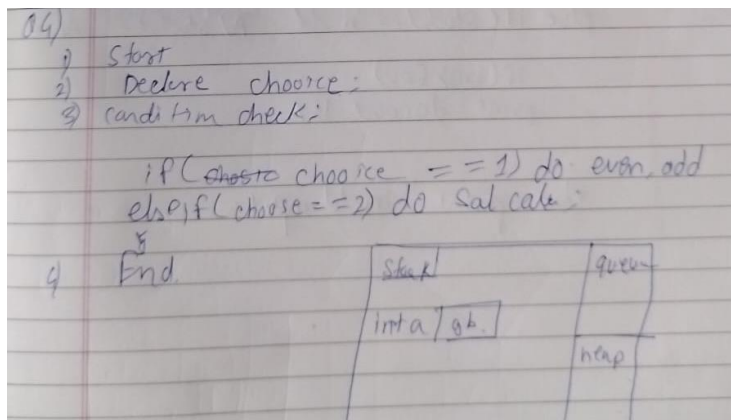 Q4)
1) Start
2) Declare chooice;
3) condition check;
if (chooice == 1) do even, odd
else if (choose == 2) do Sal calc;
4) End.
Stack
queue
int a gb.
heap